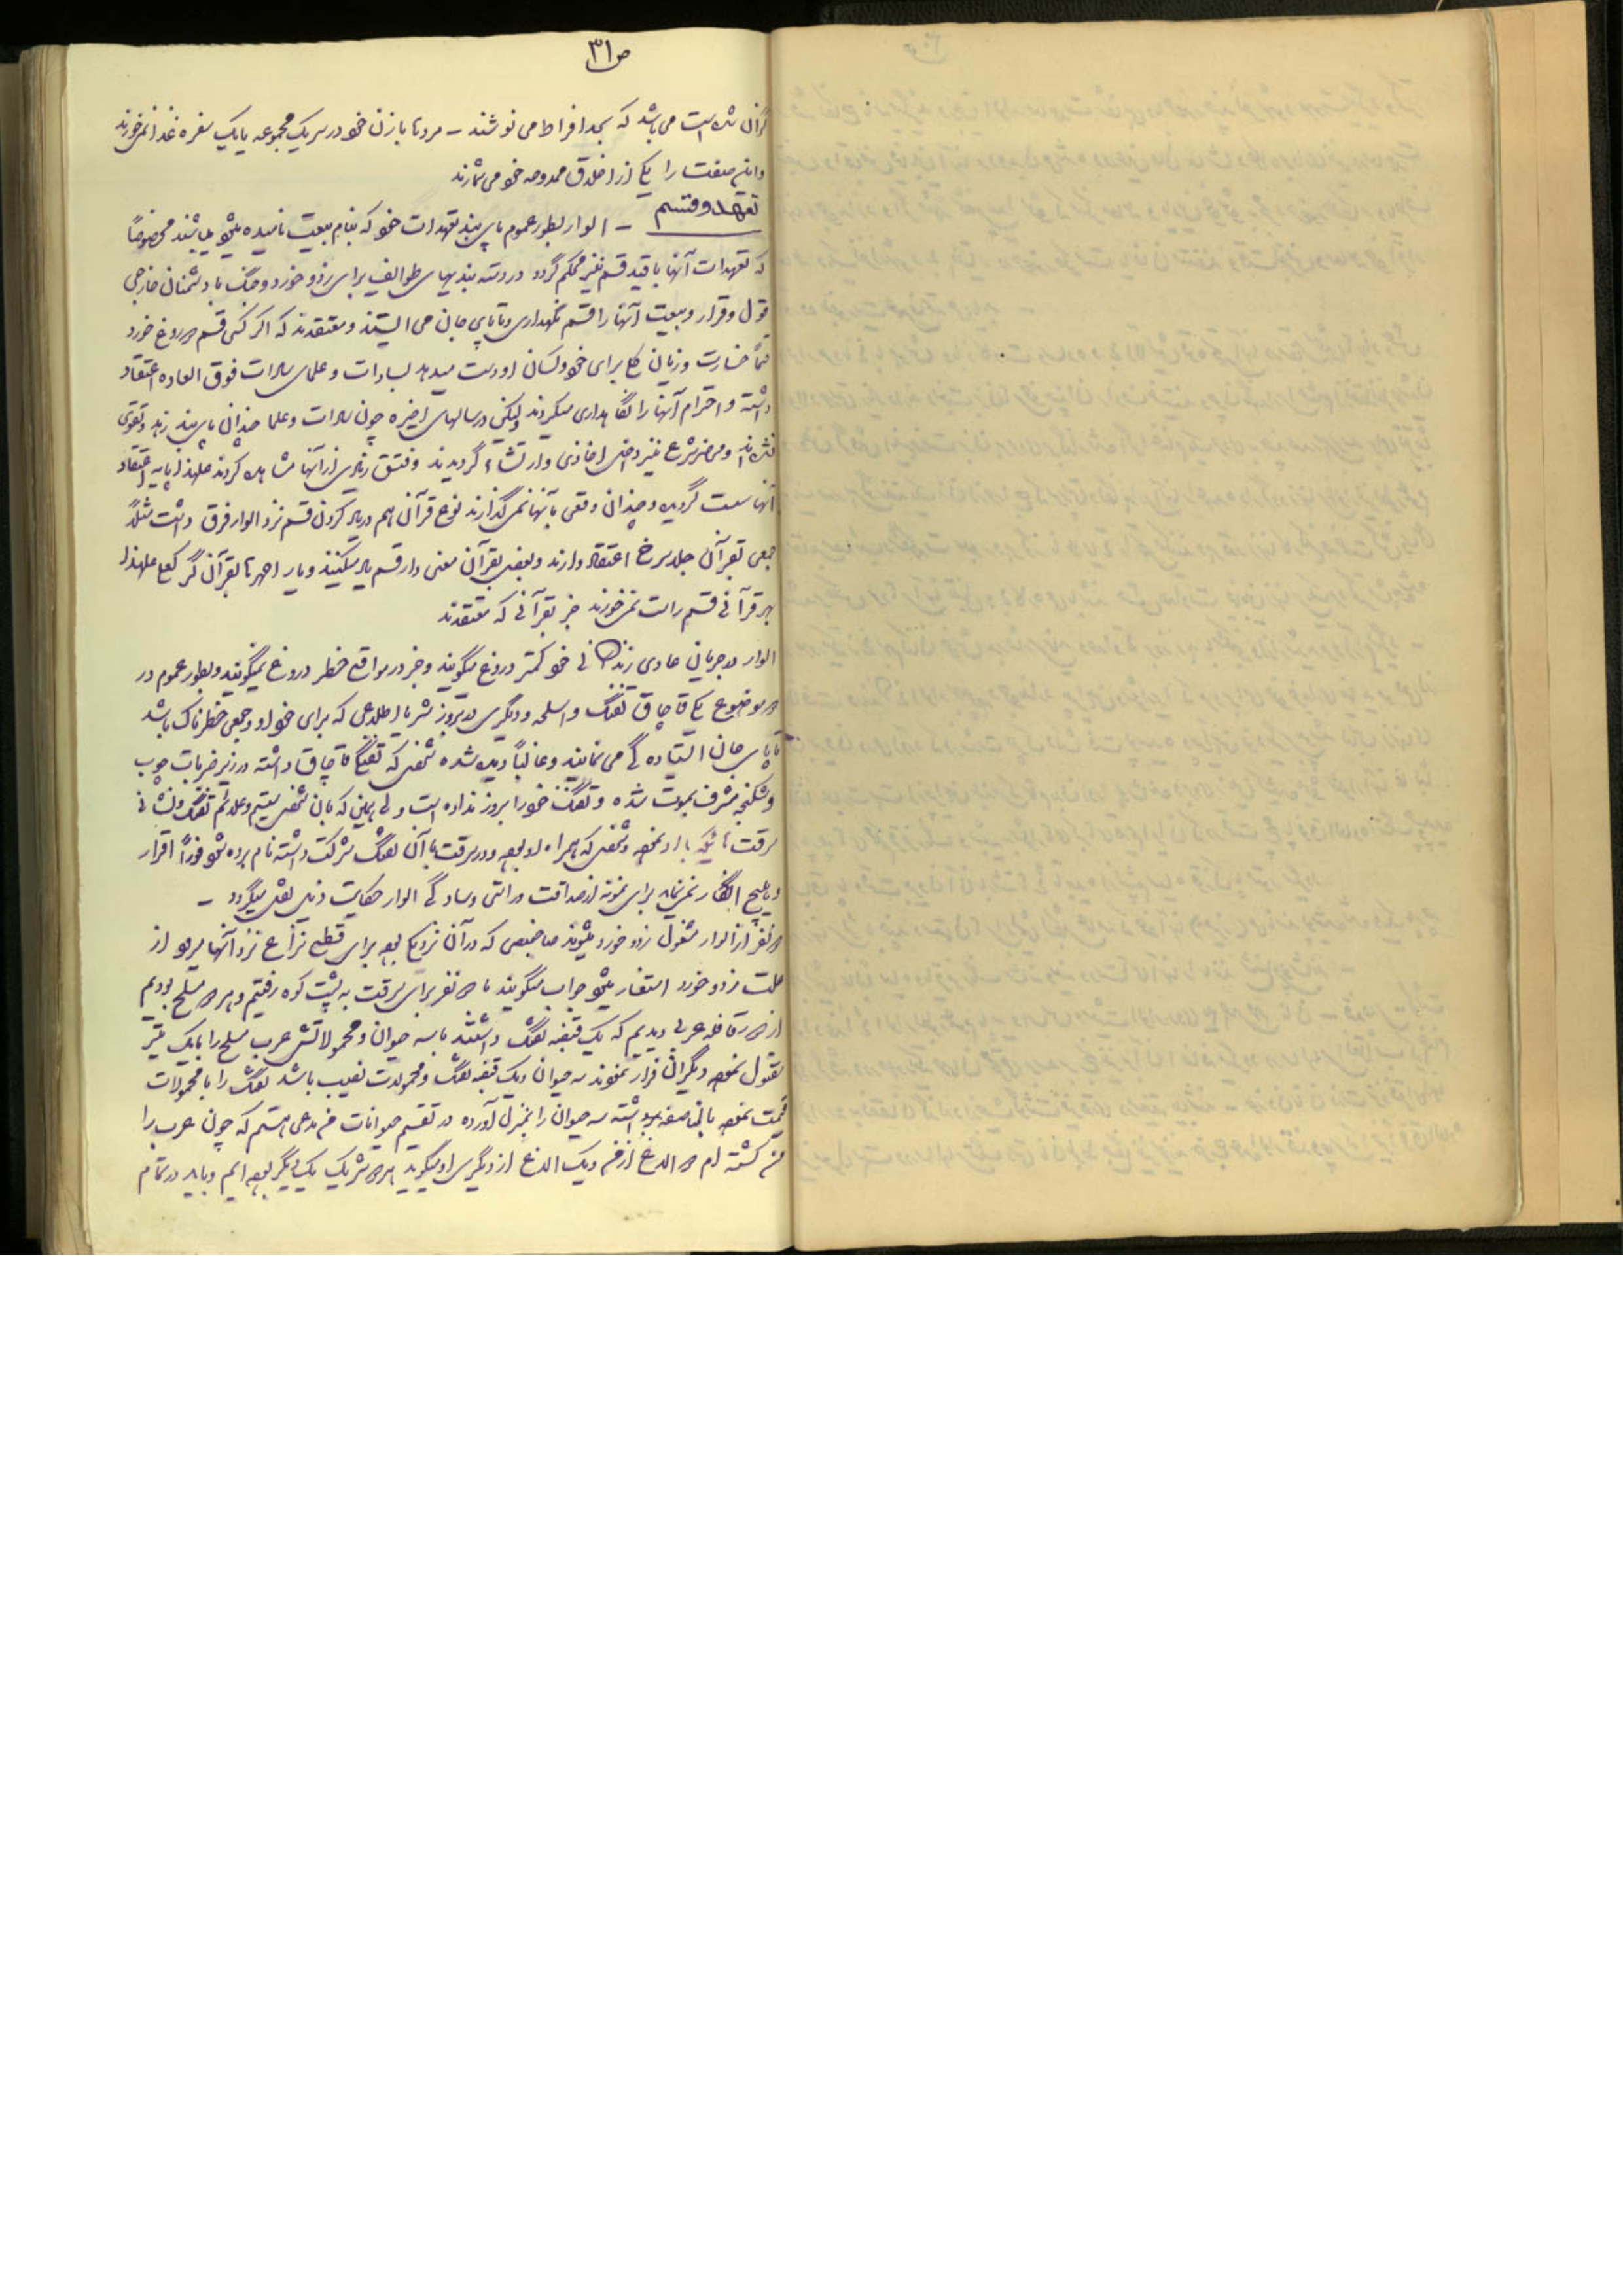 ص ۳۱
گران شده است می باشد که بحد افراط می نوشند – مردها با زن خود در سر یک مجموعه یا یک سفره غذا نمی خورند
و این صفت را یکی از اخلاق ممدوحه خود می شمارند
تعهد و قسم – الوار بطور عموم پای بند تعهدات خود که بنام بیعت نامیده میشود میباشند مخصوصاً
که تعهدات آنها با قید قسم نیز محکم گردد در دسته بندیهای طوایف برای زد و خورد و جنگ با دشمنان خارجی
قول و قرار و بیعت آنها را قسم نگهداری و تا پای جان می ایستند و معتقدند که اگر کسی قسم دروغ خورد
حتماً خسارت و زیان کلی برای خود و کسان او دست میدهد بسادات و علمای سادات فوق العاده اعتقاد
داشته و احترام آنها را نگاهداری میکردند ولیکن در سالهای اخیره چون سادات و علما چندان پای بند زهد و تقوی
نشده اند و محضر شرع نیز داخل اخاذی و ارتشاء گردیدند و فسق زیادی از آنها مشاهده کردند علیهذا پایه اعتقاد
آنها سست گردیده و چندان وقعی بآنها نمی گذارند نوع قرآن هم در یاد کردن قسم نزد الوار فرق داشت مثلاً
جمعی بقرآن جلد سرخ اعتقاد دارند و بعضی بقرآن معنی دار قسم یاد میکنند و یار احمدها بقرآن علیهذا
بهر قرآنی قسم راست نمی خورند جز بقرآنی که معتقدند
الوار در جریان عادی زندگانی خود کمتر دروغ میگویند و جز در مواقع خطر دروغ نمیگویند و بطور عموم در
دو موضوع یکی قاچاق تفنگ و اسلحه و دیگری در بروز سر یا اطلاعی که برای خود او و جمعی خطرناک باشد
تا پای جان ایستاده گی می نمایند و غالباً دیده شده شخصی که تفنگ قاچاق داشته در زیر ضربات چوب
و شکنجه مشرف بموت شده و تفنگ خود را بروز نداده است ولی همین که بآن شخص علائم تفنگ و نشانی
سرقت و شخصی که همراه او بوده و در سرقت با آن تفنگ شرکت داشته نام برده شود فوراً اقرار
و یا هیچ انکار نمی نماید برای نمونه از صداقت و راستی و سادگی الوار حکایت ذیل نقل میگردد –
دو نفر از الوار مشغول زد و خورد میشوند صاحبمنصبی که در آن نزدیکی بوده برای قطع نزاع نزد آنها میرود از
علت زد و خورد استفسار میشود جواب میگویند ما دو نفر برای سرقت به پشت کوه رفتیم و هر دو مسلح بودیم
از دور قافله عربی دیدیم که یک قبضه تفنگ داشتند با سه حیوان و محمولاتش عرب مسلح را با یک تیر
مقتول نموده دیگران فرار نمودند سه حیوان و یک قبضه تفنگ و محمولات نصیب ما شد تفنگ را با محمولات
قسمت نموده بالمناصفه برداشته سه حیوان را بمنزل آورده در تقسیم حیوانات من مدعی هستم که چون عرب را
من کشته ام دو الاغ از من و یک الاغ از دیگری او میگوید هر دو شریک یکدیگر بوده ایم و باید در تمام